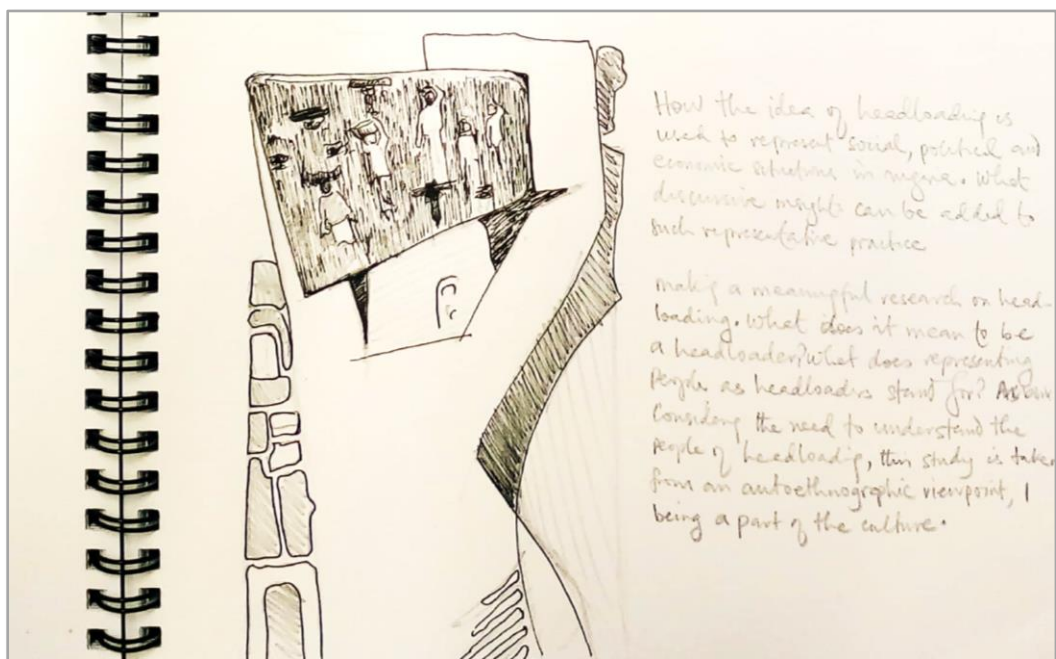 How the idea of headloading is
used to represent social, political and
economic situations in nigeria. What
discursive insights can be added to
such representative practice
making a meaningful research on head-
loading. What does it mean to be
a headloader? What does representing
people as headloaders stand for?
Considering the need to understand the
people of headloading, this study is taken
from an autoethnographic viewpoint, I
being a part of the culture.